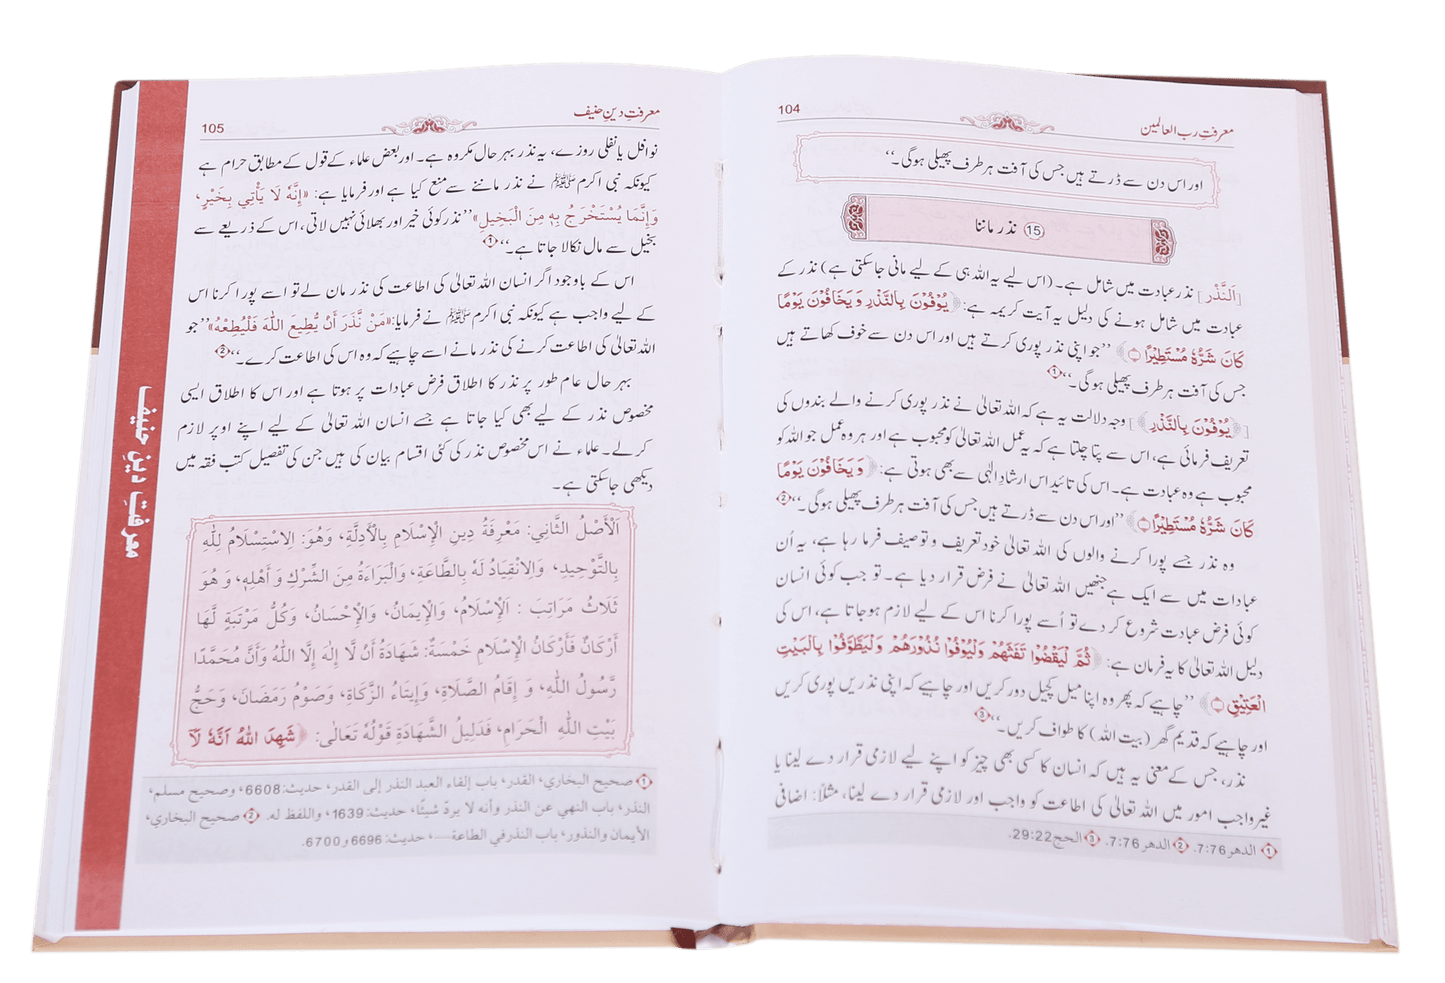 معرفتِ رب العالمین
104
اور اس دن سے ڈرتے ہیں جس کی آفت ہر طرف پھیلی ہوگی۔‘‘
15 نذر ماننا
[اَلنَّذْر] نذر عبادت میں شامل ہے۔ (اس لیے یہ اللہ ہی کے لیے مانی جاسکتی ہے) نذر کے
عبادت میں شامل ہونے کی دلیل یہ آیت کریمہ ہے: ﴿يُوْفُوْنَ بِالنَّذْرِ وَيَخَافُوْنَ يَوْمًا
كَانَ شَرُّهٗ مُسْتَطِيْرًا﴾ ’’جو اپنی نذر پوری کرتے ہیں اور اس دن سے خوف کھاتے ہیں
جس کی آفت ہر طرف پھیلی ہوگی۔‘‘ 1
[﴿يُوْفُوْنَ بِالنَّذْرِ﴾] وجہ دلالت یہ ہے کہ اللہ تعالیٰ نے نذر پوری کرنے والے بندوں کی
تعریف فرمائی ہے، اس سے پتا چلتا ہے کہ یہ عمل اللہ تعالیٰ کو محبوب ہے اور ہر وہ عمل جو اللہ کو
محبوب ہے وہ عبادت ہے۔ اس کی تائید اس ارشادِ الٰہی سے بھی ہوتی ہے: ﴿وَيَخَافُوْنَ يَوْمًا
كَانَ شَرُّهٗ مُسْتَطِيْرًا﴾ ’’اور اس دن سے ڈرتے ہیں جس کی آفت ہر طرف پھیلی ہوگی۔‘‘ 2
وہ نذر جسے پورا کرنے والوں کی اللہ تعالیٰ خود تعریف و توصیف فرما رہا ہے، یہ اُن
عبادات میں سے ایک ہے جنھیں اللہ تعالیٰ نے فرض قرار دیا ہے۔ تو جب کوئی انسان
کوئی فرض عبادت شروع کر دے تو اُسے پورا کرنا اس کے لیے لازم ہوجاتا ہے، اس کی
دلیل اللہ تعالیٰ کا یہ فرمان ہے: ﴿ثُمَّ لْيَقْضُوْا تَفَثَهُمْ وَلْيُوْفُوْا نُذُوْرَهُمْ وَلْيَطَّوَّفُوْا بِالْبَيْتِ
الْعَتِيْقِ﴾ ’’چاہیے کہ پھر وہ اپنا میل کچیل دور کریں اور چاہیے کہ اپنی نذریں پوری کریں
اور چاہیے کہ قدیم گھر (بیت اللہ) کا طواف کریں۔‘‘ 3
نذر، جس کے معنی یہ ہیں کہ انسان کا کسی بھی چیز کو اپنے لیے لازمی قرار دے لینا یا
غیر واجب امور میں اللہ تعالیٰ کی اطاعت کو واجب اور لازمی قرار دے لینا، مثلاً: اضافی
1 الدهر 7:76. 2 الدهر 7:76. 3 الحج 29:22.
معرفتِ دینِ حنیف
105
نوافل یا نفلی روزے، یہ نذر بہر حال مکروہ ہے۔ اور بعض علماء کے قول کے مطابق حرام ہے
کیونکہ نبی اکرم ﷺ نے نذر ماننے سے منع کیا ہے اور فرمایا ہے: «إِنَّهٗ لَا يَأْتِي بِخَيْرٍ،
وَإِنَّمَا يُسْتَخْرَجُ بِهٖ مِنَ الْبَخِيلِ» ’’نذر کوئی خیر اور بھلائی نہیں لاتی، اس کے ذریعے سے
بخیل سے مال نکالا جاتا ہے۔‘‘ 1
اس کے باوجود اگر انسان اللہ تعالیٰ کی اطاعت کی نذر مان لے تو اسے پورا کرنا اس
کے لیے واجب ہے کیونکہ نبی اکرم ﷺ نے فرمایا: «مَنْ نَّذَرَ أَنْ يُّطِيعَ اللّٰهَ فَلْيُطِعْهُ» ’’جو
اللہ تعالیٰ کی اطاعت کرنے کی نذر مانے اسے چاہیے کہ وہ اس کی اطاعت کرے۔‘‘ 2
بہر حال عام طور پر نذر کا اطلاق فرض عبادات پر ہوتا ہے اور اس کا اطلاق ایسی
مخصوص نذر کے لیے بھی کیا جاتا ہے جسے انسان اللہ تعالیٰ کے لیے اپنے اوپر لازم
کرلے۔ علماء نے اس مخصوص نذر کی کئی اقسام بیان کی ہیں جن کی تفصیل کتب فقہ میں
دیکھی جاسکتی ہے۔
اَلْأَصْلُ الثَّانِي: مَعْرِفَةُ دِينِ الْإِسْلَامِ بِالْأَدِلَّةِ، وَهُوَ: الِاسْتِسْلَامُ لِلّٰهِ
بِالتَّوْحِيدِ، وَالِانْقِيَادُ لَهٗ بِالطَّاعَةِ، وَالْبَرَاءَةُ مِنَ الشِّرْكِ وَأَهْلِهٖ، وَهُوَ
ثَلَاثُ مَرَاتِبَ: اَلْإِسْلَامُ، وَالْإِيمَانُ، وَالْإِحْسَانُ، وَكُلُّ مَرْتَبَةٍ لَّهَا
أَرْكَانٌ فَأَرْكَانُ الْإِسْلَامِ خَمْسَةٌ: شَهَادَةُ أَنْ لَّا إِلٰهَ إِلَّا اللّٰهُ وَأَنَّ مُحَمَّدًا
رَّسُولُ اللّٰهِ، وَ إِقَامُ الصَّلَاةِ، وَإِيتَاءُ الزَّكَاةِ، وَصَوْمُ رَمَضَانَ، وَحَجُّ
بَيْتِ اللّٰهِ الْحَرَامِ، فَدَلِيلُ الشَّهَادَةِ قَوْلُهٗ تَعَالٰى: ﴿شَهِدَ اللّٰهُ اَنَّهٗ لَآ
1 صحيح البخاري، القدر، باب إلقاء العبد النذر إلى القدر، حديث: 6608، وصحيح مسلم،
النذر، باب النهي عن النذر وأنه لا يردّ شيئًا، حديث: 1639، واللفظ له. 2 صحيح البخاري،
الأيمان والنذور، باب النذر في الطاعة...، حديث: 6696 و 6700.
معرفتِ دینِ حنیف